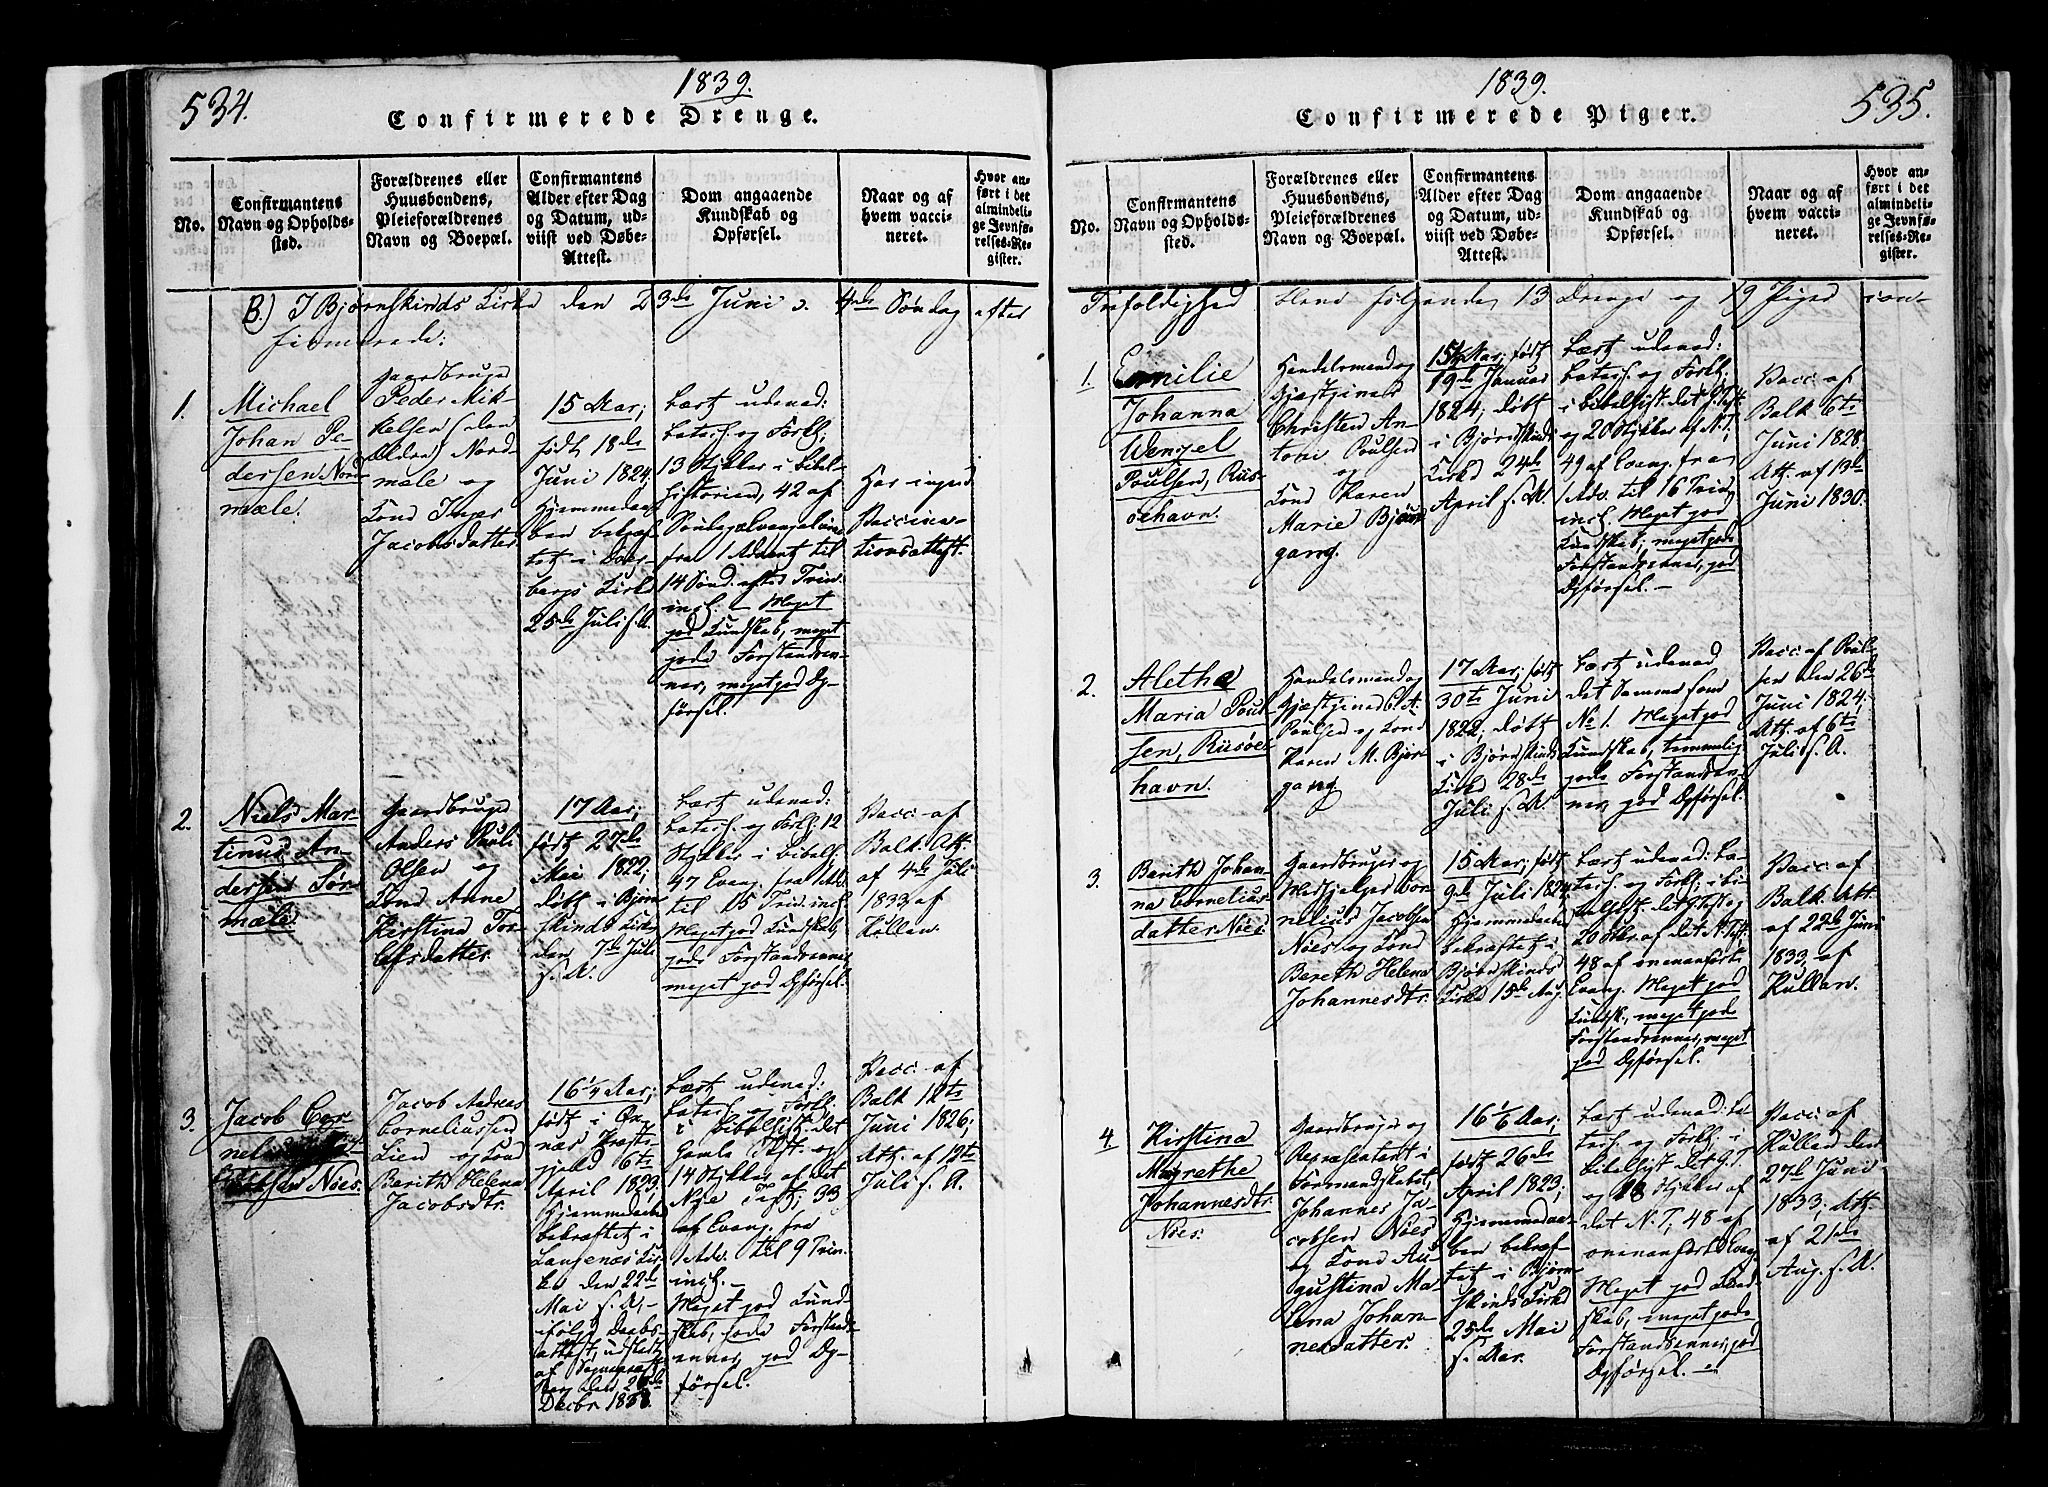 534.
1839.
Confirmerede Drenge.
No.
Confirmantens
Navn og Opholds-
sted.
Forældrenes eller
Huusbondens,
Pleieforældrenes
Navn og Boepæl.
Confirmantens
Alder efter Dag
og Datum, ud-
viist ved Døbe-
Attest.
Dom angaaende
Kundskab og
Opførsel.
Naar og af
hvem vacci-
neret.
Hvor an-
ført i det
almindeli-
ge Jevnfø-
relses-Re-
gister.
B.) I Bjørnskinds Kirke den 23de Juni s. 4de Søndag efter
firmerede:
1.
Michael
Johan Pe-
dersen Nord-
mæle.
Gaardbruger
Peder Mik-
kelsen (den
Ældre) Nord-
mæle og
Kone Inger
Jacobsdatter
15 Aar;
født 18de
Juni 1824;
Hjemmedaa-
ben bekræf-
tet i Dver-
bergs Kirke
25de Juli s. A.
Læst udenad:
Catech. og Forkl;
13 Stykker i Bibel-
historien, 42 af
fra 1 Advent til
14 Sønd. efter Trin.
incl. – Meget
god Kundskab, meget
gode Forstandsev-
ner, meget god Op-
førsel.
Har ingen
Vaccina-
tionsattest.
2.
Niels Mar-
tinus An-
dersen Sør-
mæle.
Gaardbruger
Anders Pauli
Olsen og
Kone Anne
Kirstina Tor-
lefsdatter.
17 Aar;
født 27de
Mai 1822;
døbt i Bjørn-
skinds Kirke
den 7de Juli
s. A.
Læst udenad:
Catech. og Forkl; 12
Stykker i Bibelh.
47 Evang. fra 1 Adv.
til 15 Trin. incl.
Meget god Kundskab,
gode Forstandsevner
meget god Opførsel.
Vacc. af
Balk. Att.
af 4de Juli
1833 af
Kullan.
3.
Jacob Cor-
Nöes.
Jacob Andreas
Corneliussen
Lien og Kone
Berith Helena
Jacobsdtr.
16 1/4 Aar;
født i Øx-
næs Præste-
gjeld 6te
April 1823;
Hjemmedaaben
bekræftet i
Langenæs Kir-
ke den 22de
Mai s. A,
ifølge Daabs-
attest, udstedt
af
den 26de
Decbr 1838.
Læst udenad:
Catech. og Forkl;
i Bibelhist. det
Gamle Test. og
14 Stykker af det
Nye Test; 33
af Evang. fra
1 Adv. til 9 Trin.
incl. –
Meget god Kund-
skab, gode Forstands-
evner, god Op-
førsel.
Vacc. af
Balk 12te
Juni 1826;
Att. af 12te
Juli s. A.
1839.
535.
Confirmerede Piger.
No.
Confirmantens
Navn og Opholds-
sted.
Forældrenes eller
Huusbondens,
Pleieforældrenes
Navn og Boepæl.
Confirmantens
Alder efter Dag
og Datum, ud-
viist ved Døbe-
Attest.
Dom angaaende
Kundskab og
Opførsel.
Naar og af
hvem vacci-
neret.
Hvor an-
ført i det
almindeli-
ge Jevnfø-
relses-Re-
gister.
Trefoldighed bleve følgende 13 Drenge og 19 Piger con-
1.
Emilie
Johanna
Wenzel
Poülsen, Riis-
öehavn.
Handelsmand og
Gjæstgiver
Christen An-
toni Poulsen
og
Kone Karen
Marie Bjørn-
gang.
15 1/2 Aar; født
19de Januar
1824; døbt
i Bjørnskinds
Kirke 24de
April s. A.
Læst udenad:
Catech. og Forkl;
i Bibelhist. det G. Test.
og 20 Stykker af N. T;
49 af Evang. fra
1 Adv. til 16 Trin.
incl. Meget god
Kundskab; meget gode
Forstandsevner, god
Opførsel. –
Vacc. af
Balk 6te
Juni 1828.
Att. af 13de
Juni 1830.
2.
Alethe
Maria Poul-
sen, Riisöe-
havn.
Handelsmand og
Gjæstgiver C. A.
Poulsen og Kone
Karen M. Bjørn-
gang
17 Aar; født
30te Juni
1822; døbt
i Bjørnskinds
Kirke 28de
Juli s. A.
Læst udenad
det Samme som
No 1. Meget god
Kundskab, temmelig
gode Forstandsev-
ner, god Opførsel.
Vacc. af Poul-
sen den 26de
Juni 1824;
Att. af 6te
Juli s. A.
3.
Berith Johan-
na Cornelius-
datter Nöes
Gaardbruger og
Medhjelper Cor-
nelius Jacobsen
Nöes og Kone
Bereth Helena
Johannesdtr.
15 Aar; født
9de Juli 1824;
Hjemmedaaben
bekræftet i
Bjørnskinds
Kirke 15de Aug.
Læst udenad: Ca-
tech. og Forkl; i Bi-
belhist. det G. Test. og
20 Stkr af det N. Test.
48 af ovenanførte
Evang. Meget god
Kundsk., meget gode
Forstandsevner, meget
god Opførsel.
Vacc. af
Balk. Att.
af 22de Juni
1833 af
Kullan.
4.
Kirstina
Magrethe
Johannesdtr.
Nöes.
Gaardbruger og
Repræsentant i
Formandskabet,
Johannes Ja-
cobsen Nöes
og Kone Au-
gustina Ma-
lena Johan-
nesdatter.
16 1/6 Aar;
født 26de
April 1823;
Hjemmedaa-
ben bekræf-
tet i Bjørn-
skinds Kirke
25de Mai
s. Aar.
Læst udenad: Ca-
tech. og Forkl; i
Bibelhist. det G. T.
og 18 Stykker af
det N. T; 48 af
ovenanførte Evang.
Meget god Kund-
skab, meget gode
Forstandsevner, god
Opførsel. –
Vacc. af
Kullan den
27de Juni
1833; Att.
af 21de
Aug. s. A.